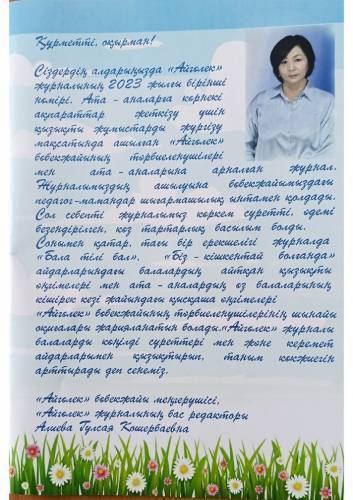 Құрметті, оқырман!
Сіздердің алдарыңызда «Айгөлек»
журналының 2023 жылғы бірінші
нөмірі. Ата - аналарға көрнекі
ақпараттар жеткізу үшін
қызықты жұмыстарды жүргізу
мақсатында ашылған «Айгөлек»
бөбекжайының тәрбиеленушілері
мен ата - аналарына арналған журнал.
Журналымыздың ашылуына бөбекжайымыздағы
педагог-мамандар шығармашылық ынтамен қолдады.
Сол себепті журналымыз көркем суретті, әдемі
безендірілген, көз тартарлық басылым болды.
Сонымен қатар, тағы бір ерекшелігі журналда
«Бала тілі бал», «Біз - кішкентай болғанда»
айдарларындағы балалардың айтқан қызықты
әңгімелері мен ата - аналардың өз балаларының
кішірек кезі жайындағы қысқаша әңгімелері
«Айгөлек» бөбекжайының тәрбиеленушілерінің шынайы
оқиғалары жарияланатын болады.«Айгөлек» журналы
балаларды көңілді суреттері мен және керемет
айдарларымен қызықтырып, таным көкжиегін
арттырады деп сенеміз.
«Айгөлек» бөбекжайы меңгерушісі,
«Айгөлек» журналының бас редакторы
Алиева Гулсая Кошербаевна